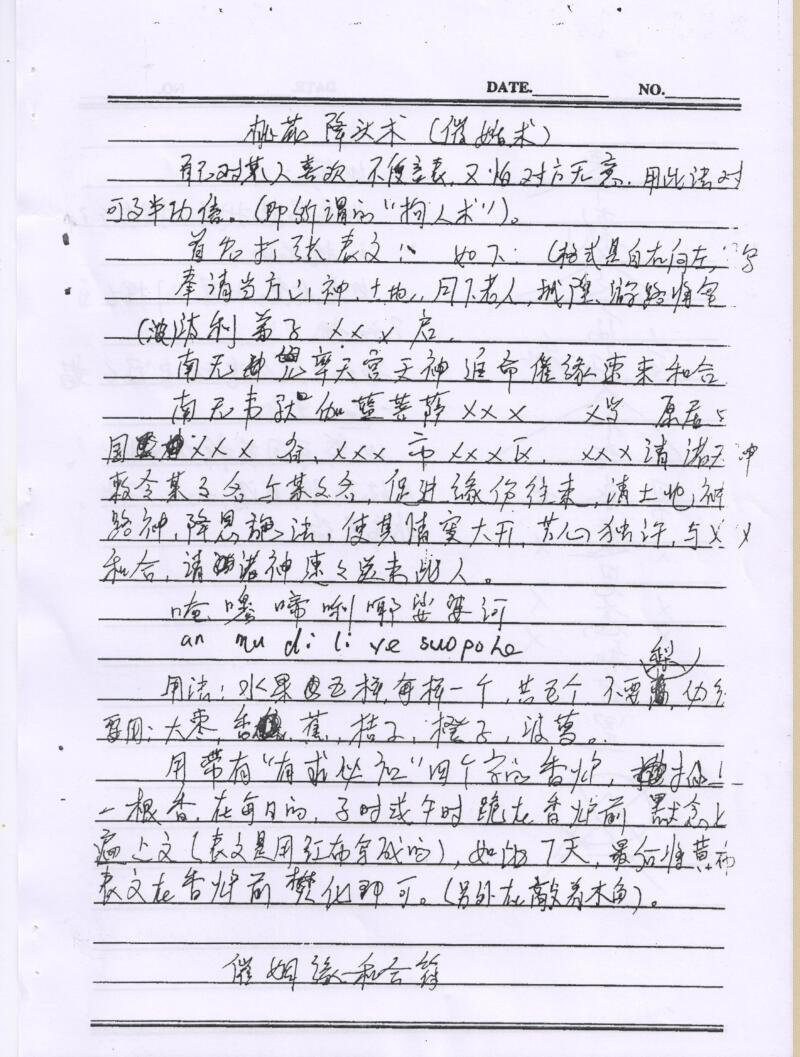 DATE. NO.
桃花降头术（催婚术）
有已对某人喜欢，不便言表，又怕对方无意，用此法对
可事半功倍。（即所谓的“拘人术”）。
首先打张表文： 如下：（格式是自右向左，字
奉请当方山神、土地、月下老人，城隍、游路将军
（波）法利弟子 XXX 启.
南无 摩天宫天神 进命催缘速来和合
南无韦驮 伽蓝菩萨 XXX X岁 原居
国 XXX 省，XXX 市 XXX 区，XXX 请诸天神
敕令某某合与某某合，促进缘份往来，请土地神
路神，降恩 法，使其情窦大开，芳心独许，与XX
和合，请诸神速々送来此人。
唵 嚕 啼 唎 哪 娑 婆 诃
an nu di li ye suopohe
梨
用法：水果 五样，每样一个，共五个，不要 ，
要用：大枣，香蕉，桔子，橙子，菠萝。
用带有“有求必应”四个字的香炉，
一根香，在每日的，子时或午时跪在香炉前 默念
遍上文（表文是用红布穿成的），如此7天，最后将黄布
表文在香炉前焚化即可。（另外在敲着木鱼）。
催姻缘和合符